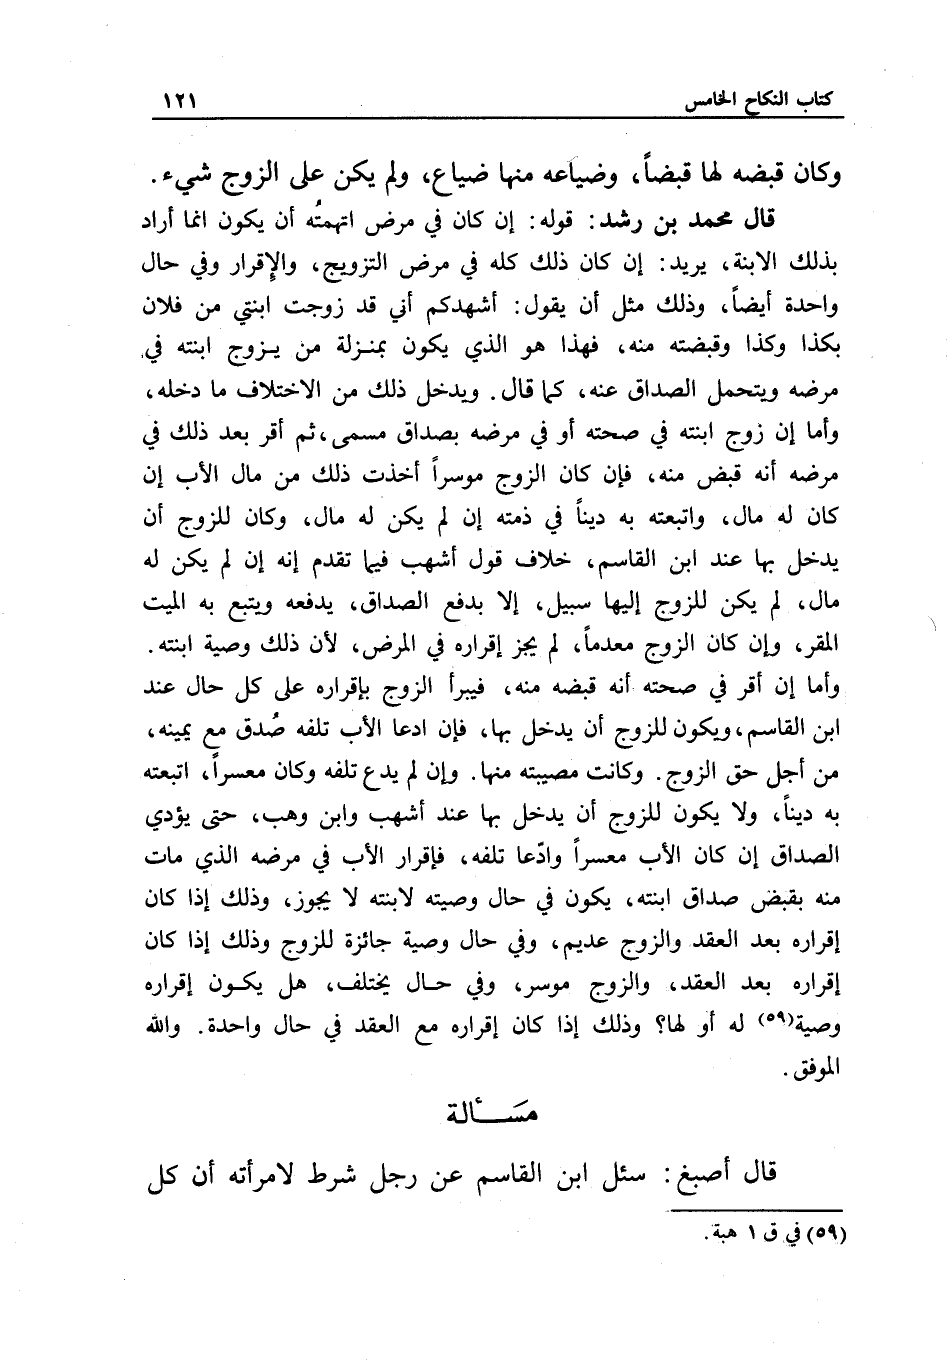 كتاب النكاح الخامس ١٢١
وكان قبضه لها قبضاً، وضياعه منها ضياع، ولم يكن على الزوج شيء.
قال محمد بن رشد: قوله: إن كان في مرض اتهمتُه أن يكون انما أراد
بذلك الابنة، يريد: إن كان ذلك كله في مرض التزويج، والإقرار وفي حال
واحدة أيضاً، وذلك مثل أن يقول: أشهدكم أني قد زوجت ابنتي من فلان
بكذا وكذا وقبضته منه، فهذا هو الذي يكون بمنزلة من يزوج ابنته في
مرضه ويتحمل الصداق عنه، كما قال. ويدخل ذلك من الاختلاف ما دخله،
وأما إن زوج ابنته في صحته أو في مرضه بصداق مسمى، ثم أقر بعد ذلك في
مرضه أنه قبض منه، فإن كان الزوج موسراً أخذت ذلك من مال الأب إن
كان له مال، واتبعته به ديناً في ذمته إن لم يكن له مال، وكان للزوج أن
يدخل بها عند ابن القاسم، خلاف قول أشهب فيما تقدم إنه إن لم يكن له
مال، لم يكن للزوج إليها سبيل، إلا بدفع الصداق، يدفعه ويتبع به الميت
المقر، وإن كان الزوج معدماً، لم يجز إقراره في المرض، لأن ذلك وصية ابنته.
وأما إن أقر في صحته أنه قبضه منه، فيبرأ الزوج بإقراره على كل حال عند
ابن القاسم، ويكون للزوج أن يدخل بها، فإن ادعا الأب تلفه صُدق مع يمينه،
من أجل حق الزوج. وكانت مصيبته منها. وإن لم يدع تلفه وكان معسراً، اتبعته
به ديناً، ولا يكون للزوج أن يدخل بها عند أشهب وابن وهب، حتى يؤدي
الصداق إن كان الأب معسراً وادّعا تلفه، فإقرار الأب في مرضه الذي مات
منه بقبض صداق ابنته، يكون في حال وصيته لابنته لا يجوز، وذلك إذا كان
إقراره بعد العقد والزوج عديم، وفي حال وصية جائزة للزوج وذلك إذا كان
إقراره بعد العقد، والزوج موسر، وفي حال يختلف، هل يكون إقراره
وصية(٥٩) له أو لها؟ وذلك إذا كان إقراره مع العقد في حال واحدة. والله
الموفق.
مَسألة
قال أصبغ: سئل ابن القاسم عن رجل شرط لامرأته أن كل
(٥٩) في ق ١ هبة.